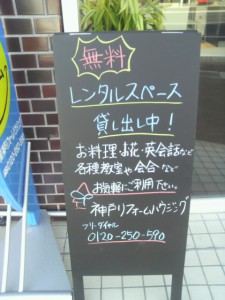 無料
レンタルスペース
貸し出し中!
お料理・お花・英会話など
各種教室や会合など
お気軽にご利用下さい。
神戸リフォームハウジング
フリーダイヤル
0120-250-590